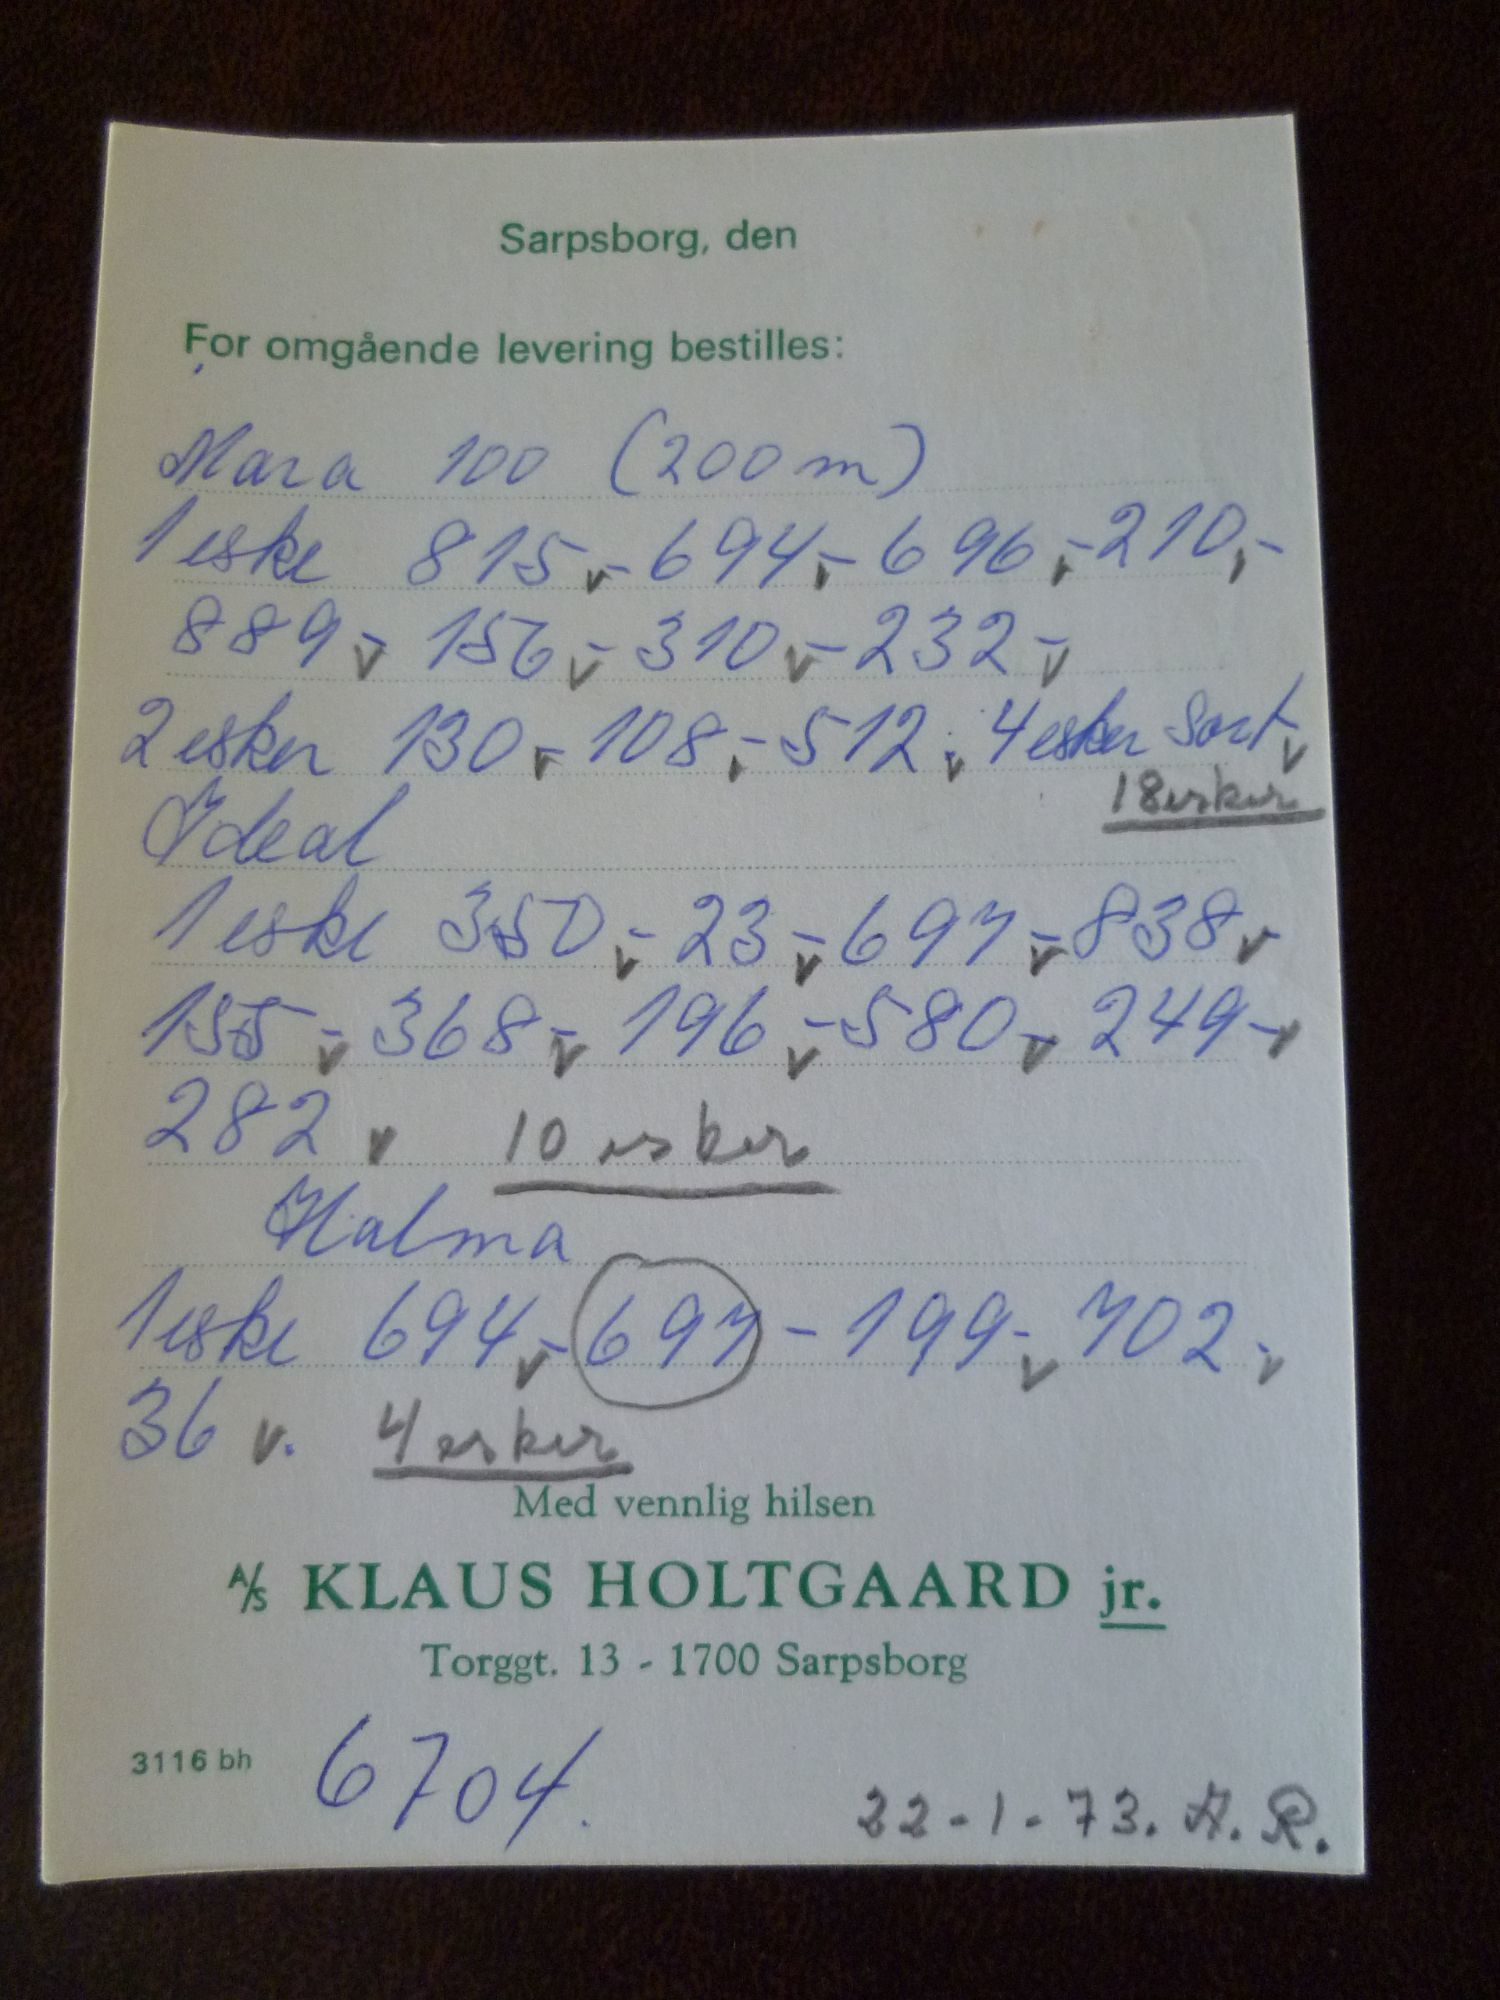 Sarpsborg, den
For omgående levering bestilles:
Mara 100 (200 m)
1 eske 815 - 694 - 696 - 210 -
889 - 156 - 310 - 232 -
2 esker 130 - 108 - 512. 4 esker Sort
18 esker
Ideal
1 eske 350 - 23 - 697 - 838 -
155 - 368 - 196 - 580 - 249 -
282 10 esker
Halma
1 eske 694 - 697 - 199 - 702 -
36. 4 esker
Med vennlig hilsen
A/S KLAUS HOLTGAARD jr.
Torggt. 13 - 1700 Sarpsborg
3116 bh 6704.
22-1-73. A. R.